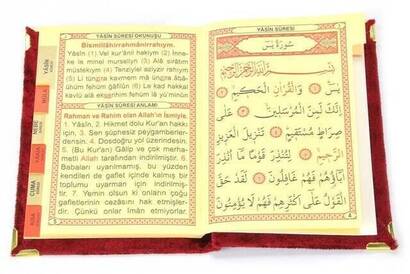 YÂSİN SÛRESİ OKUNUŞU
Bismillâhirrahmânirrahîym.
Yâsîn (1) Vel kur'ânil hakiym (2) İnne-
ke le minel murseliyn (3) Alâ sırâtım
müstekıym (4) Tenziylel azizir rahıym
(5) Li tünzira kavmem mâ ünzira âbâ-
ühüm fehüm ğâfilûn (6) Le kad hakkal
kavlü alâ ekserihim fehüm lâ yü'minûn
YÂSİN SÛRESİ ANLAMI
Rahman ve Rahim olan Allah'ın İsmiyle.
1. Yâsin, 2. Hikmet dolu Kur'an hakkı
için, 3. Sen şüphesiz peygamberler-
densin. 4. Dosdoğru yol üzerindesin.
5. (Bu Kur'an) Gâlip ve çok merha-
metli Allah tarafından indirilmiştir. 6.
Babaları uyarılmamış, bu yüzden
kendileri de gaflet içinde kalmış bir
toplumu uyarman için indirilmiştir.
7. Yemin olsun ki onların çoğu
gafletlerinin cezâsını hak etmişler-
dir. Çünkü onlar îman etmiyorlar.
YÂSİN
NEBE
CUMA
YÂSİN SÛRESİ
سُورَةُ يٰسٓ
بِسْمِ اللّٰهِ الرَّحْمٰنِ الرَّحِيمِ
يٰسٓ ﴿١﴾ وَالْقُرْاٰنِ الْحَكِيمِ ﴿٢﴾
اِنَّكَ لَمِنَ الْمُرْسَلِينَ ﴿٣﴾ عَلٰى
صِرَاطٍ مُسْتَقِيمٍ ﴿٤﴾ تَنْزِيلَ الْعَزِيزِ
الرَّحِيمِ ﴿٥﴾ لِتُنْذِرَ قَوْمًا مَٓا اُنْذِرَ
اٰبَٓاؤُ۬هُمْ فَهُمْ غَافِلُونَ ﴿٦﴾ لَقَدْ حَقَّ
الْقَوْلُ عَلٰٓى اَكْثَرِهِمْ فَهُمْ لَا يُؤْمِنُونَ
4